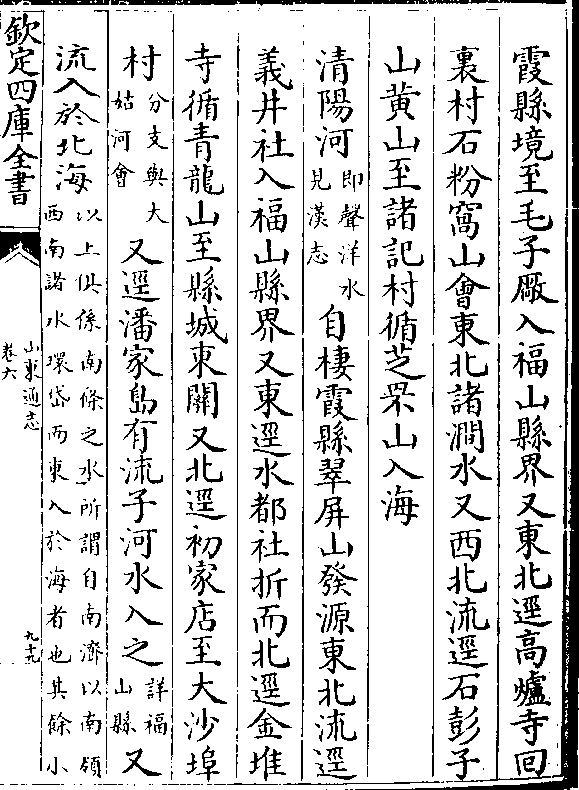 霞縣境至毛子厰入福山縣界又東北逕高爐寺回
裏村石粉窩山會東北諸澗水又西北流逕石彭子
山黄山至諸記村循芝罘山入海
清陽河即聲洋水見漢志自棲霞縣翠屏山發源東北流逕
義井社入福山縣界又東逕水都社折而北逕金堆
寺循青龍山至縣城東關又北逕初家店至大沙埠
村分支與大姑河會又逕潘家島有流子河水入之詳福山縣又
流入於北海以上俱係南條之水所謂自南濟以南領西南諸水環岱而東入於海者也其餘小
欽定四庫全書
山東通志
卷六
九十九